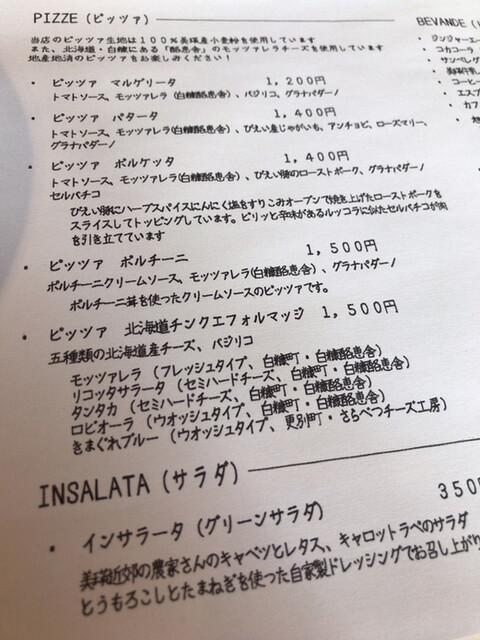 PIZZE (ピッツァ)
当店のピッツァ生地は100%美瑛産小麦粉を使用しています
また、北海道・白糠にある「酪恵舎」のモッツァレラチーズを使用しています
地産地消のピッツァをお楽しみください!
・ピッツァ マルゲリータ 1,200円
トマトソース、モッツァレラ(白糠酪恵舎)、バジリコ、グラナパダーノ
・ピッツァ パタータ 1,400円
トマトソース、モッツァレラ(白糠酪恵舎)、びえい産じゃがいも、アンチョビ、ローズマリー、
グラナパダーノ
・ピッツァ ポルケッタ 1,400円
トマトソース、モッツァレラ(白糠酪恵舎)、びえい豚のローストポーク、グラナパダーノ
セルバチコ
びえい豚にハーブスパイスにんにく塩をすりこみオーブンで焼き上げたローストポークを
スライスしてトッピングしています。ピリッと辛味があるルッコラに似たセルバチコが肉
を引き立てています
・ピッツァ ポルチーニ 1,500円
ポルチーニクリームソース、モッツァレラ(白糠酪恵舎)、グラナパダーノ
ポルチーニ茸を使ったクリームソースのピッツァです。
・ピッツァ 北海道チンクエフォルマッジ 1,500円
五種類の北海道産チーズ、バジリコ
モッツァレラ (フレッシュタイプ、白糠町・白糠酪恵舎)
リコッタサラータ (セミハードチーズ、白糠町・白糠酪恵舎)
タンタカ (セミハードチーズ、白糠町・白糠酪恵舎)
ロビオーラ (ウオッシュタイプ、白糠町・白糠酪恵舎)
きまぐれブルー (ウオッシュタイプ、更別町・さらべつチーズ工房)
INSALATA (サラダ)
・インサラータ (グリーンサラダ) 350
美瑛近郊の農家さんのキャベツとレタス、キャロットラペのサラダ
とうもろこしとたまねぎを使った自家製ドレッシングでお召し上がり
BEVANDE
・ジンジャーエー
・コカコーラ
・サンペレグ
・コーヒー
・エスプ
・カフ